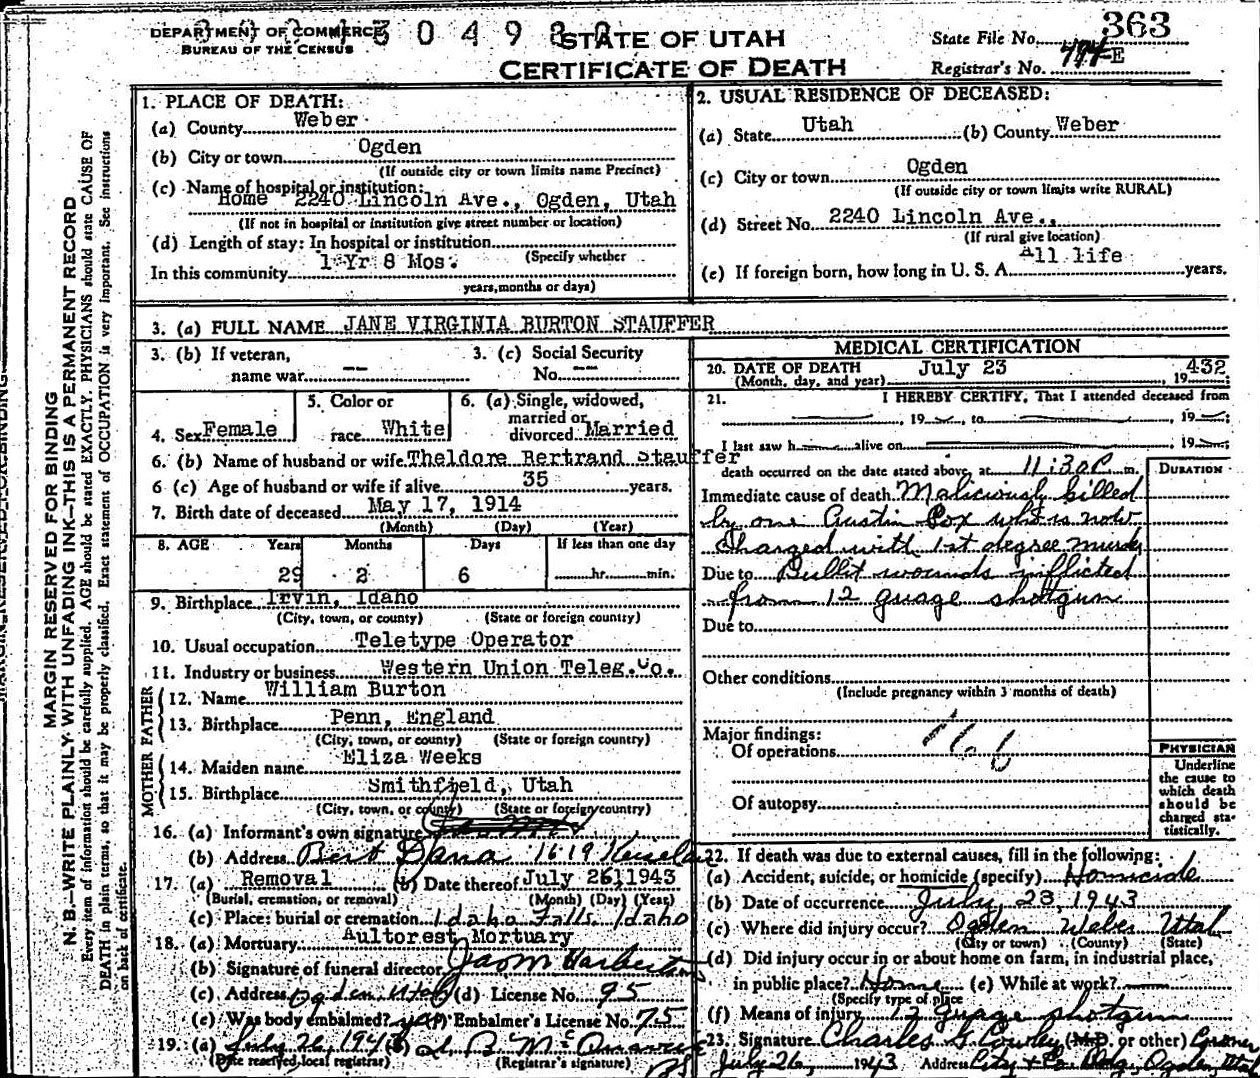 DEPARTMENT OF COMMERCE
BUREAU OF THE CENSUS
3 0 4 9 8
STATE OF UTAH
CERTIFICATE OF DEATH
State File No. 363
Registrar's No. 474-E
MARGIN RESERVED FOR BINDING
N. B.—WRITE PLAINLY WITH UNFADING INK—THIS IS A PERMANENT RECORD
Every item of information should be carefully supplied. AGE should be stated EXACTLY. PHYSICIANS should state CAUSE OF
DEATH in plain terms, so that it may be properly classified. Exact statement of OCCUPATION is very important. See instructions
on back of certificate.
1. PLACE OF DEATH:
(a) County Weber
(b) City or town Ogden
(If outside city or town limits name Precinct)
(c) Name of hospital or institution:
Home 2240 Lincoln Ave., Ogden, Utah
(If not in hospital or institution give street number or location)
(d) Length of stay: In hospital or institution
(Specify whether
In this community 1 Yr 8 Mos.
years, months or days)
2. USUAL RESIDENCE OF DECEASED:
(a) State Utah (b) County Weber
(c) City or town Ogden
(If outside city or town limits write RURAL)
(d) Street No. 2240 Lincoln Ave.,
(If rural give location)
(e) If foreign born, how long in U. S. A. All life years.
3. (a) FULL NAME JANE VIRGINIA BURTON STAUFFER
3. (b) If veteran, name war --
3. (c) Social Security No. --
4. Sex Female
5. Color or race White
6. (a) Single, widowed, married or divorced Married
6. (b) Name of husband or wife Theldore Bertrand Stauffer
6 (c) Age of husband or wife if alive 35 years.
7. Birth date of deceased May 17, 1914
(Month) (Day) (Year)
8. AGE Years Months Days If less than one day
29 2 6 hr. min.
9. Birthplace Irvin, Idaho
(City, town, or county) (State or foreign country)
10. Usual occupation Teletype Operator
11. Industry or business Western Union Teleg. Co.
FATHER
12. Name William Burton
13. Birthplace Penn, England
(City, town, or county) (State or foreign country)
MOTHER
14. Maiden name Eliza Weeks
15. Birthplace Smithfield, Utah
(City, town, or county) (State or foreign country)
16. (a) Informant's own signature
(b) Address Bert Dana 1619
17. (a) Removal (b) Date thereof July 26, 1943
(Burial, cremation, or removal) (Month) (Day) (Year)
(c) Place: burial or cremation Idaho Falls, Idaho
18. (a) Mortuary Aultorest Mortuary
(b) Signature of funeral director
(c) Address Ogden, Utah (d) License No. 95
(e) Was body embalmed? yes (f) Embalmer's License No. 75
19. (a) July 26, 1943 (b)
(Date received local registrar) (Registrar's signature)
MEDICAL CERTIFICATION
20. DATE OF DEATH July 23, 19 432
(Month, day, and year)
21. I HEREBY CERTIFY, That I attended deceased from
, 19 , to , 19 ;
I last saw h alive on , 19 ;
death occurred on the date stated above, at 11:30 P m.
DURATION
Immediate cause of death Maliciously killed
by one Austin Cox who is now
charged with 1st degree murder
Due to Bullit wounds inflicted
from 12 guage shotgun
Due to
Other conditions
(Include pregnancy within 3 months of death)
Major findings:
Of operations
Of autopsy
PHYSICIAN
Underline
the cause to
which death
should be
charged sta-
tistically.
22. If death was due to external causes, fill in the following:
(a) Accident, suicide, or homicide (specify) Homicide
(b) Date of occurrence July, 23, 1943
(c) Where did injury occur? Ogden Weber Utah
(City or town) (County) (State)
(d) Did injury occur in or about home on farm, in industrial place,
in public place? Home (e) While at work?
(Specify type of place
(f) Means of injury 12 guage shotgun
23. Signature Charles G. Cowley (M.D. or other) Coroner
July 26, 1943 Address City & Co. Bldg, Ogden, Utah